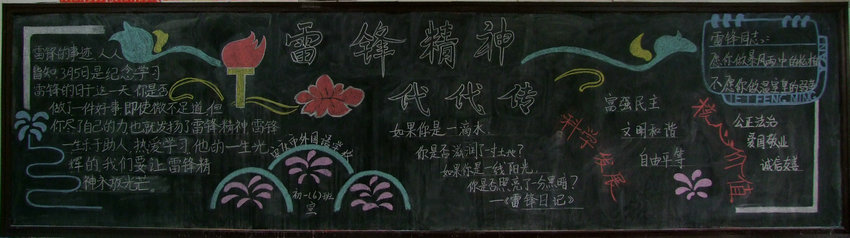 雷锋精神
代代传
雷锋的事迹人人
皆知3月5日是纪念学习
雷锋的日子这一天你是否
做了一件好事即使微不足道但
你尽了自己的力也就发扬了雷锋精神雷锋
一生于助人热爱学习他的一生光
辉的我们要让雷锋精
神永放光芒
外国语学校
初一(6)班
宣
如果你是一滴水
你是否滋润了一寸土地?
如果你是一线阳光,
你是否照亮了一分黑暗?
—《雷锋日记》
科学发展
富强民主
文明和谐
自由平等
核心价值
雷锋日志:
愿你做暴风雨中的松柏
不愿你做温室里的弱苗
LEI FENG MING
公正法治
爱国敬业
诚信友善